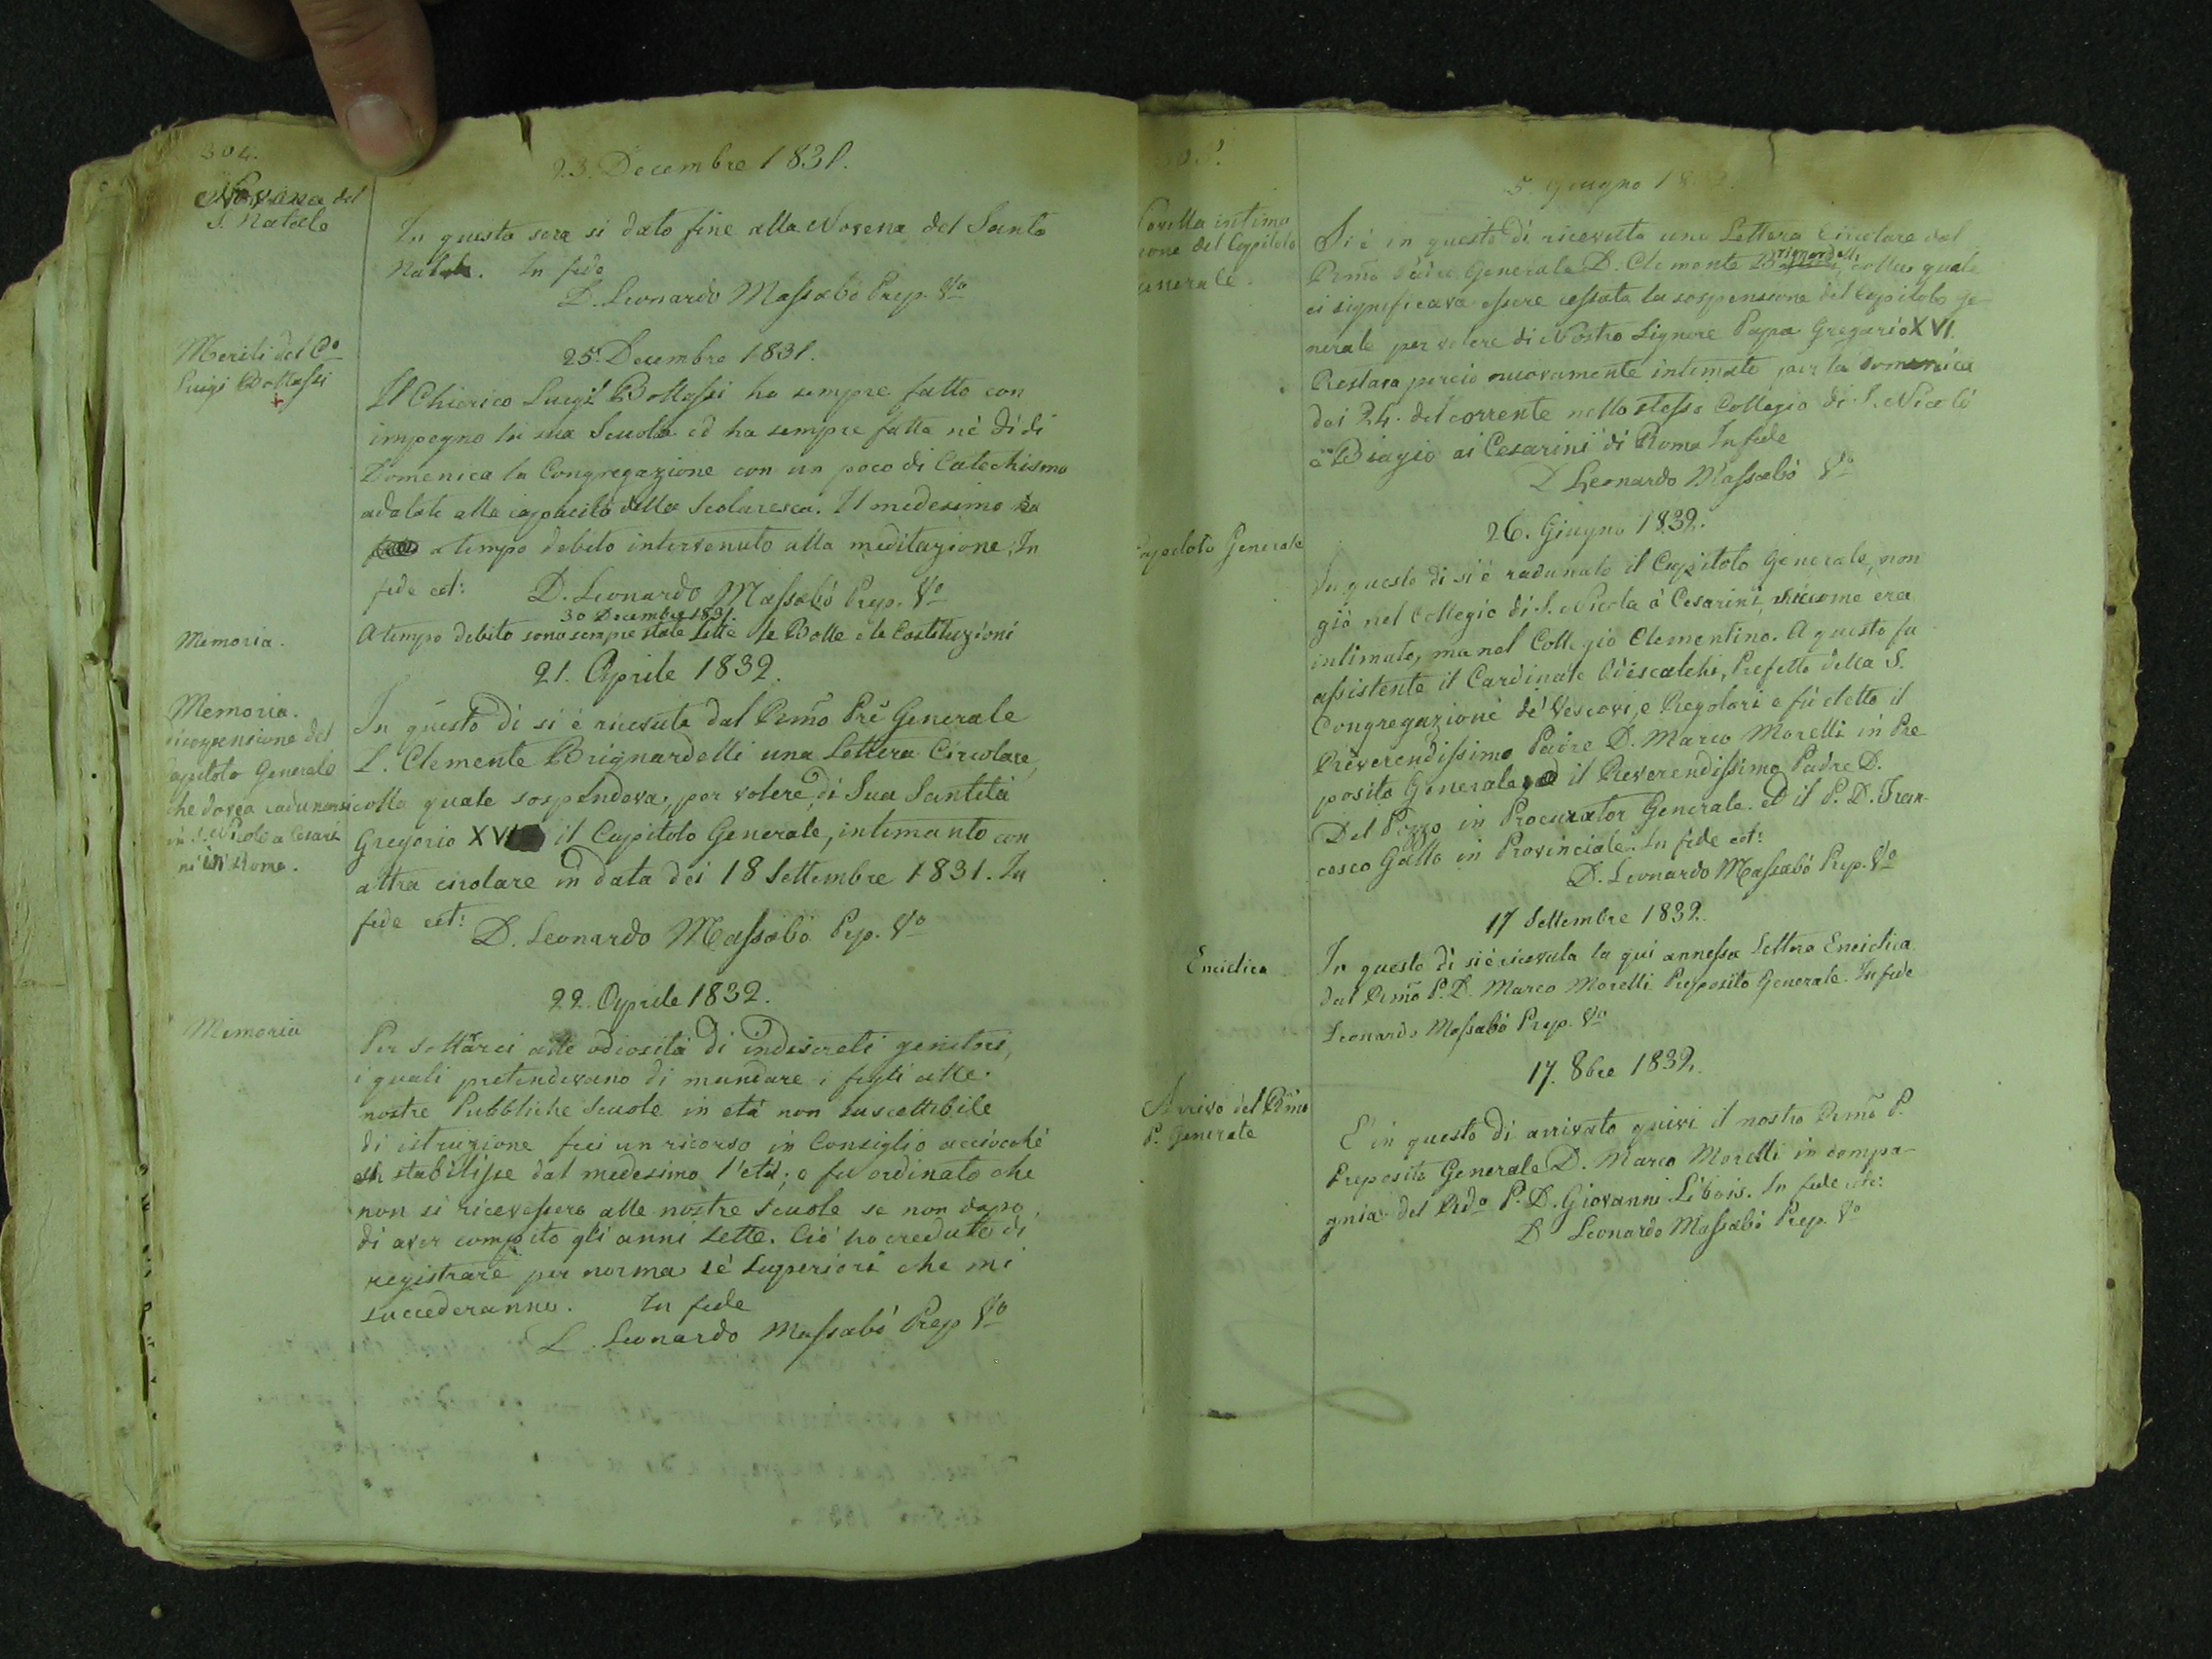 304.
23. Decembre 1831.
Novena del
S. Natale
In questa sera si dato fine alla Novena del Santo
Natale. In fede
D. Leonardo Massabò Prep. Vo
Meriti del Co
Luigi Bottassi
25. Decembre 1831.
Il Chierico Luigi Bottassi ha sempre fatto con
impegno la sua Scuola ed ha sempre fatta nè dì di
Domenica la Congregazione con un poco di Catechismo
adatato alla capacità della Scolaresca. Il medesimo ha
a tempo debito intervenuto alla meditazione. In
fede ect: D. Leonardo Massabò Prep. Vo
30 Decembre 1831.
Memoria.
A tempo debito sono sempre state lette le Bolle e le Costituzioni
21. Aprile 1832.
Memoria.
Capitolo Generale
che dovea radunarsi
in S. Nicolo a Cesari
ni in Roma.
In questo dì si è ricevuta dal Rmo Pre Generale
D. Clemente Brignardelli una Lettera Circolare,
colla quale sospendeva, per volere di Sua Santità
Gregorio XVI il Capitolo Generale, intimanto con
altra cirolare in data dei 18 Settembre 1831. In
fede ect: D. Leonardo Massabò Pep. Vo
22. Aprile 1832.
Memoria
Per sottrarci alle odiosità di indiscreti genitori,
i quali pretendevano di mandare i figli alle
nostre Pubbliche Scuole in età non suscettibile
di istruzione feci un ricorso in Consiglio acciocchè
si stabilisse dal medesimo l'età; e fu ordinato che
non si ricevessero alle nostre Scuole se non dopo
di aver compito gli anni sette. Ciò ho creduto di
registrare per norma dè Superiori che mi
succederanno. In fede
D. Leonardo Massabò Prep Vo
305.
5. Giugno 1832.
Novella intima
zione del Capitolo
Generale.
Si è in questo dì ricevuta una Lettera Circolare dal
Rmo Padre Generale D. Clemente Brignardelli, colla quale
ci significava essere cessata la sospensione del Capitolo ge-
nerale per volere di Nostro Signore Papa Gregorio XVI.
Restava perciò nuovamente intimato per la domenica
dai 24. del corrente nello stesso Collegio di S. Nicolò
e Biagio ai Cesarini di Roma In fede
D Leonardo Massabò Vo
26. Giugno 1832.
Capitolo Generale
In questo dì si è radunato il Capitolo Generale, non
già nel Collegio di S. Nicola à Cesarini, siccome era
intimato, ma nel Collegio Clementino. A questo fu
assistente il Cardinale Odescalchi, Prefetto della S.
Congregazione de' Vescovi, e Regolari e fù eletto il
Reverendissimo Padre D. Marco Morelli in Pre
posito Generale, ed il Reverendissimo Padre D.
Del Pozzo in Procurator Generale. ed il P. D. Fran-
cesco Gatto in Provinciale. In fede ect:
D. Leonardo Massabò Prep. Vo
17 Settembre 1832.
Enciclica
In questo dì si è ricevuta la qui annessa lettera Enciclica
dal Rmo P. D. Marco Morelli Preposito Generale. In fede
Leonardo Massabò Prep. Vo
17. 8bre 1832.
Arrivo del Rmo
P. Generale
E' in questo dì arrivato quivi il nostro Rmo P.
Preposito Generale D. Marco Morelli in compa-
gnia del Rdo P. D. Giovanni Libois. In fede ect:
D Leonardo Massabò Prep. Vo